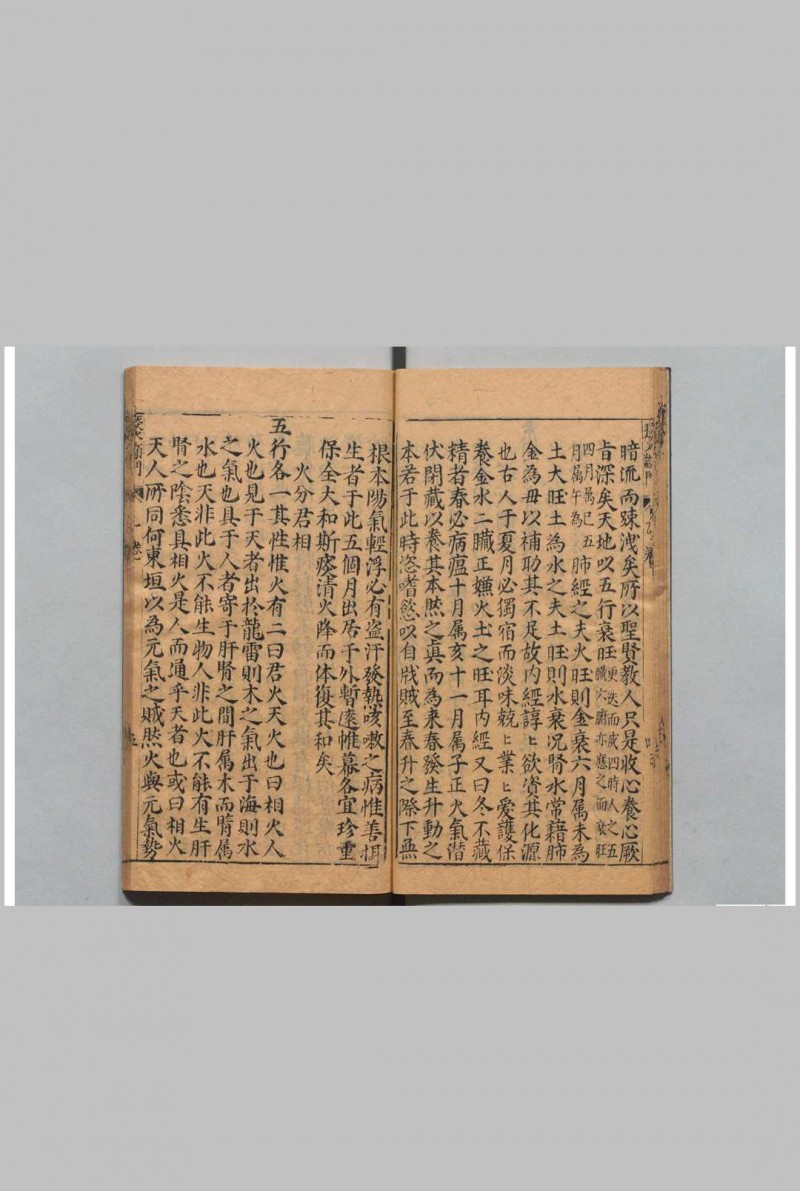 暗流而踈洩矣所以聖賢教人只是收心養心厥
旨深矣天地以五行衰旺更迭而成四時人之五臟六腑亦應之而衰旺
四月属巳五月属午為肺經之夫火旺則金衰六月属未為
土大旺土為水之夫土旺則水衰况腎水常藉肺
金為母以補助其不足故内經諄ヒ欲資其化源
也古人于夏月必獨宿而淡味兢ヒ業ヒ愛護保
養金水二臟正嫌火土之旺耳内經又曰冬不藏
精者春必病瘟十月属亥十一月属子正火氣潜
伏閉藏以養其本然之真而為来春發生升動之
本若于此時恣嗜慾以自戕賊至春升之際下無
根本陽氣輕浮必有盗汗發熱咳嗽之病惟善揖
生者于此五個月出居于外暫遠帷幕各宜珍重
保全大和斯痰清火降而体復其和矣
火分君相
五行各一其性惟火有二曰君火天火也曰相火人
火也見于天者出於龍雷則木之氣出于海則水
之氣也具于人者寄于肝腎之間肝属木而腎属
水也天非此火不能生物人非此火不能有生肝
腎之陰悉具相火是人而通乎天者也或曰相火
天人所同何東垣以為元氣之賊然火與元氣勢